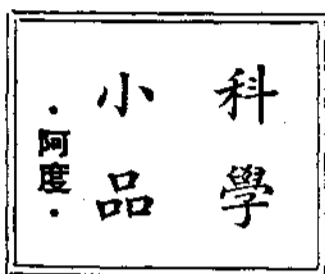 科學
小品
·阿度·